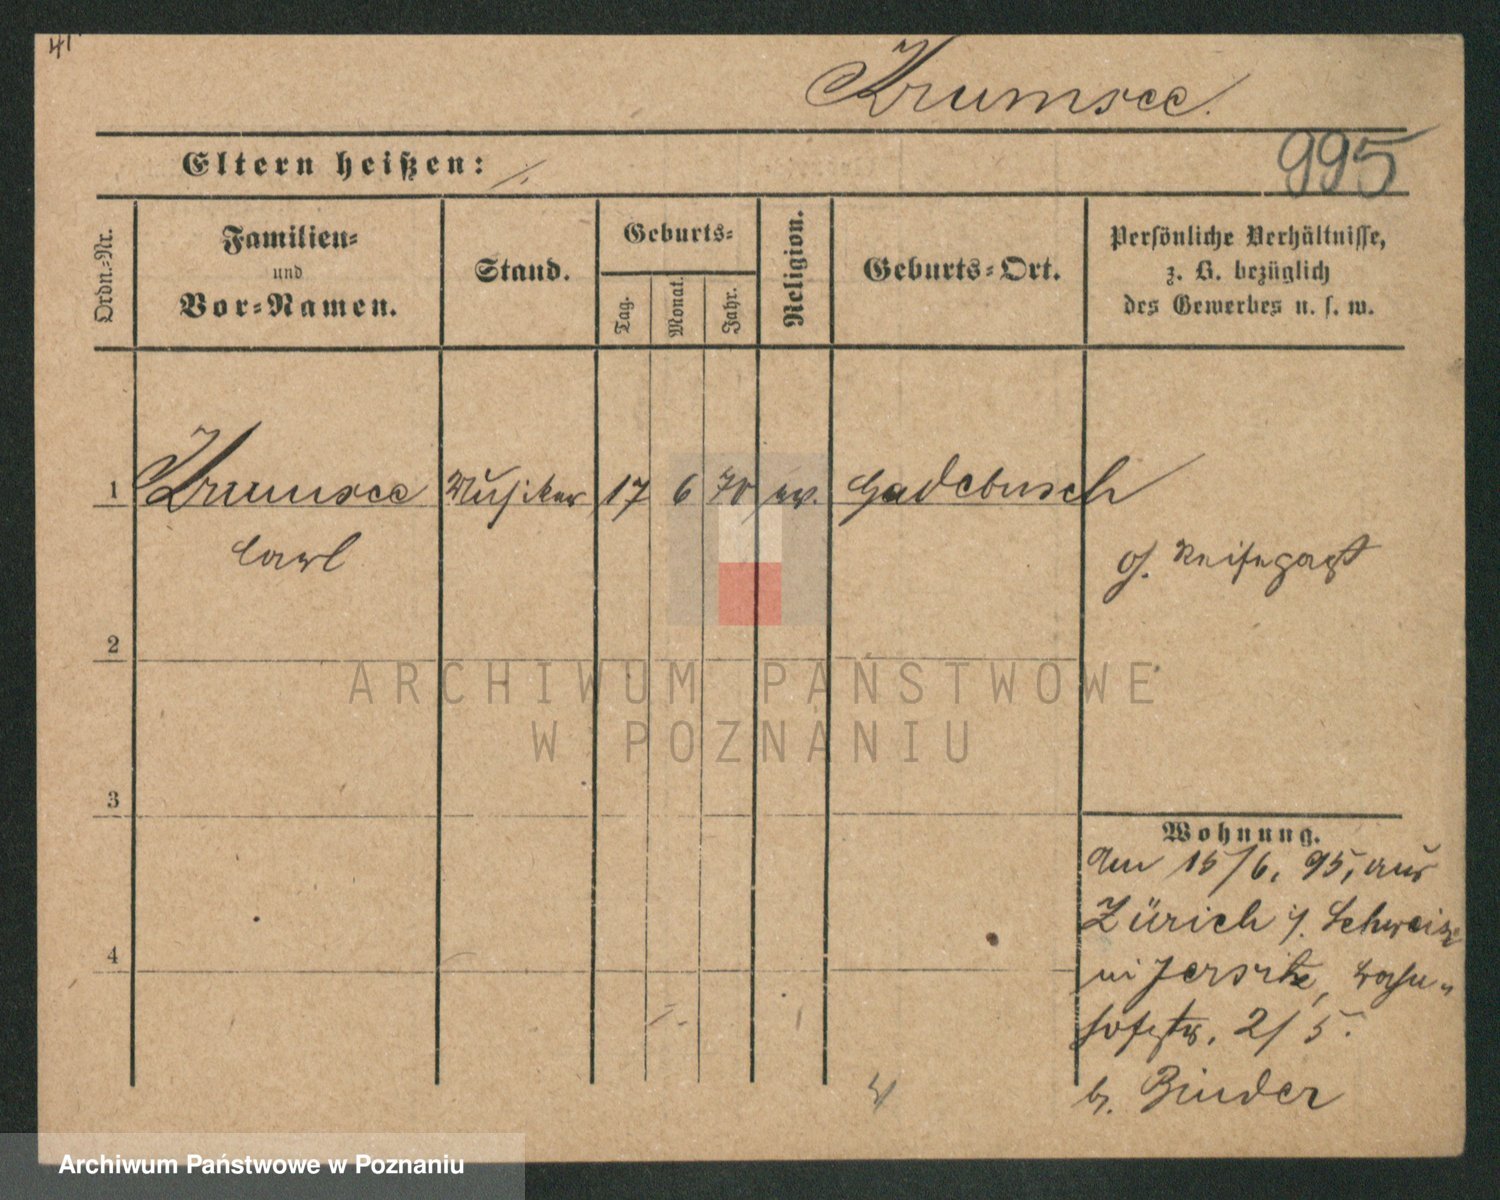 41
Krumsee.
Eltern heißen: /.
995
Ordn.-Nr.
Familien- und Vor-Namen.
Stand.
Geburts-
Tag.
Monat.
Jahr.
Religion.
Geburts-Ort.
Persönliche Verhältnisse,
z. B. bezüglich
des Gewerbes u. s. w.
1 Krumsee Musiker 17 6 70 ev. Gadebusch
Carl
Reisepaß
2
3
4
Wohnung.
Am 15/6. 95, aus
Zürich i/. Schweiz
in Jersitz, Bahn-
hofstr. 2/5.
b. Binder
ARCHIWUM PAŃSTWOWE
W POZNANIU
Archiwum Państwowe w Poznaniu